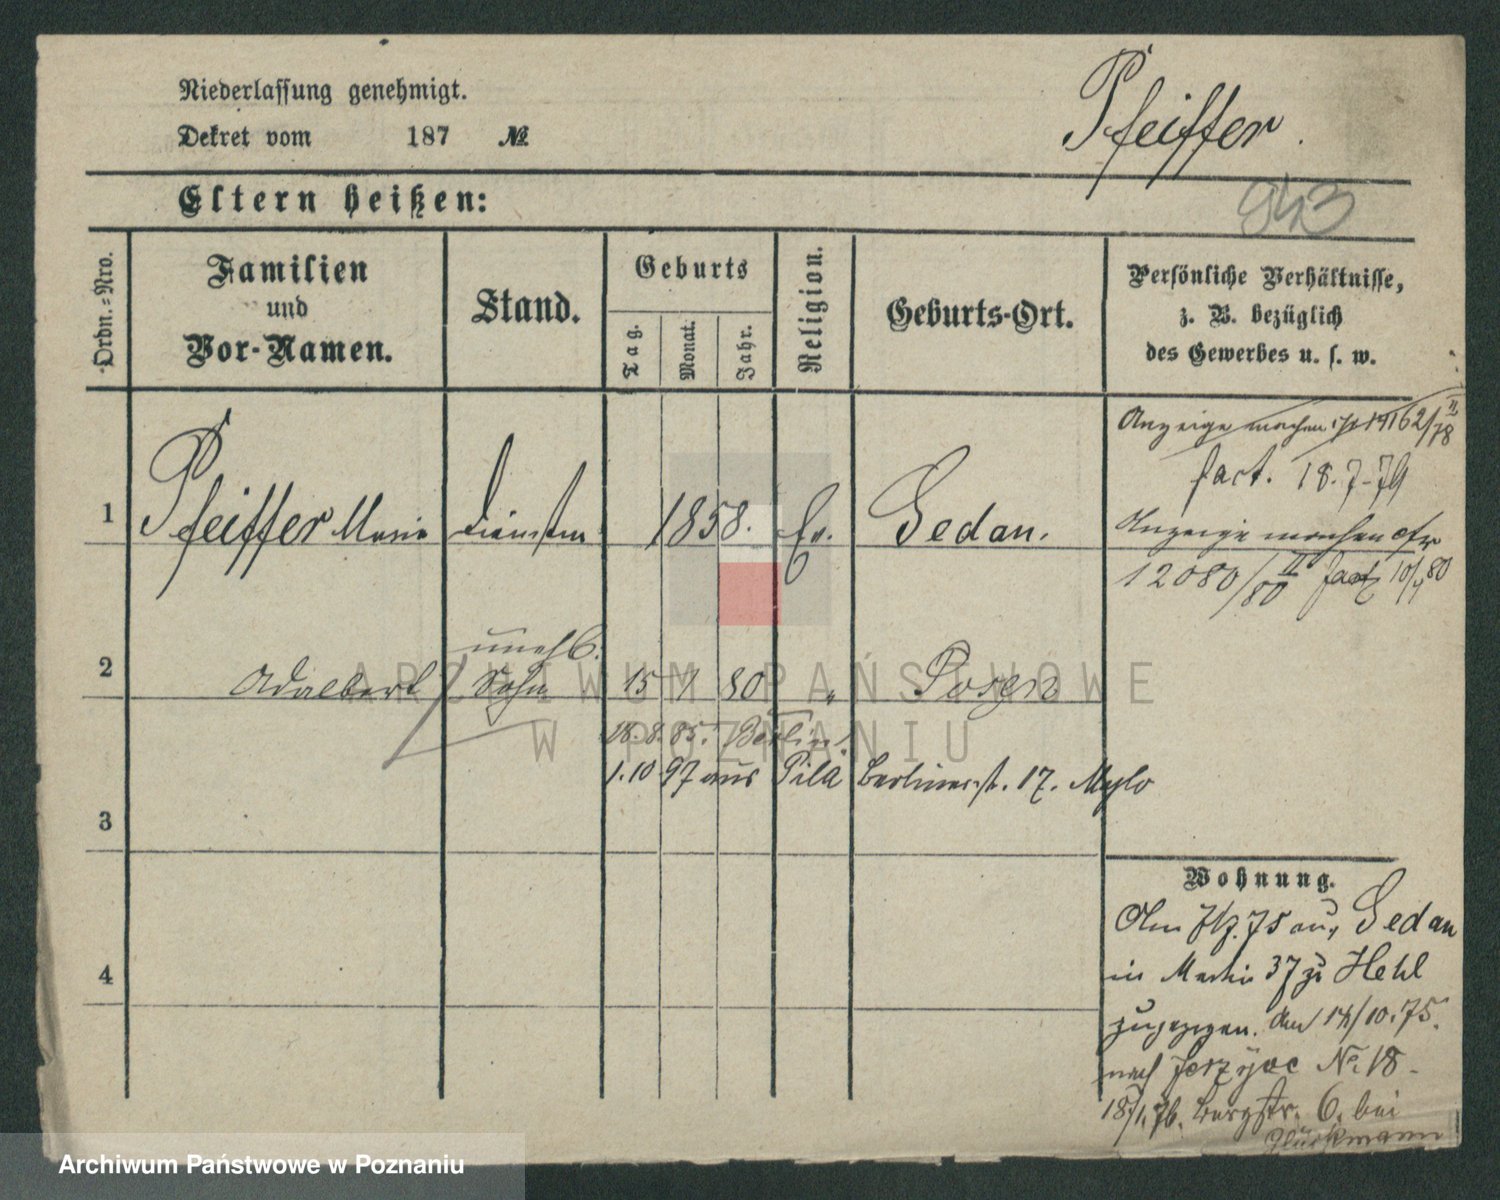 Niederlassung genehmigt.
Dekret vom 187 №
Pfeiffer.
943
Eltern heißen:
Ordn.-Nro.
Familien
und
Vor-Namen.
Stand.
Geburts
Tag.
Monat.
Jahr.
Religion.
Geburts-Ort.
Persönliche Verhältnisse,
z. B. bezüglich
des Gewerbes u. s. w.
Anzeige machen 19162/II 78
fact. 18.7-79
1 Pfeiffer Marie 1858. Ev. Gedan.
Anzeige machen
12080/II 80 fact 10/4 80
2 Adalbert unehl. Sohn 15 1 80 " Posen
18.8.85. Berlin.
1.10 97 aus Pila Berlinerst. 17. Mylo
3
Wohnung.
Am 7/7.75 aus Gedan
in Martin 37 zu Hehl
zugezogen. den 14/10.75.
nach Jerzyce № 18.
18/1.76. Bergstr. 6. bei
Glückmann
4
ARCHIWUM PAŃSTWOWE
W POZNANIU
Archiwum Państwowe w Poznaniu